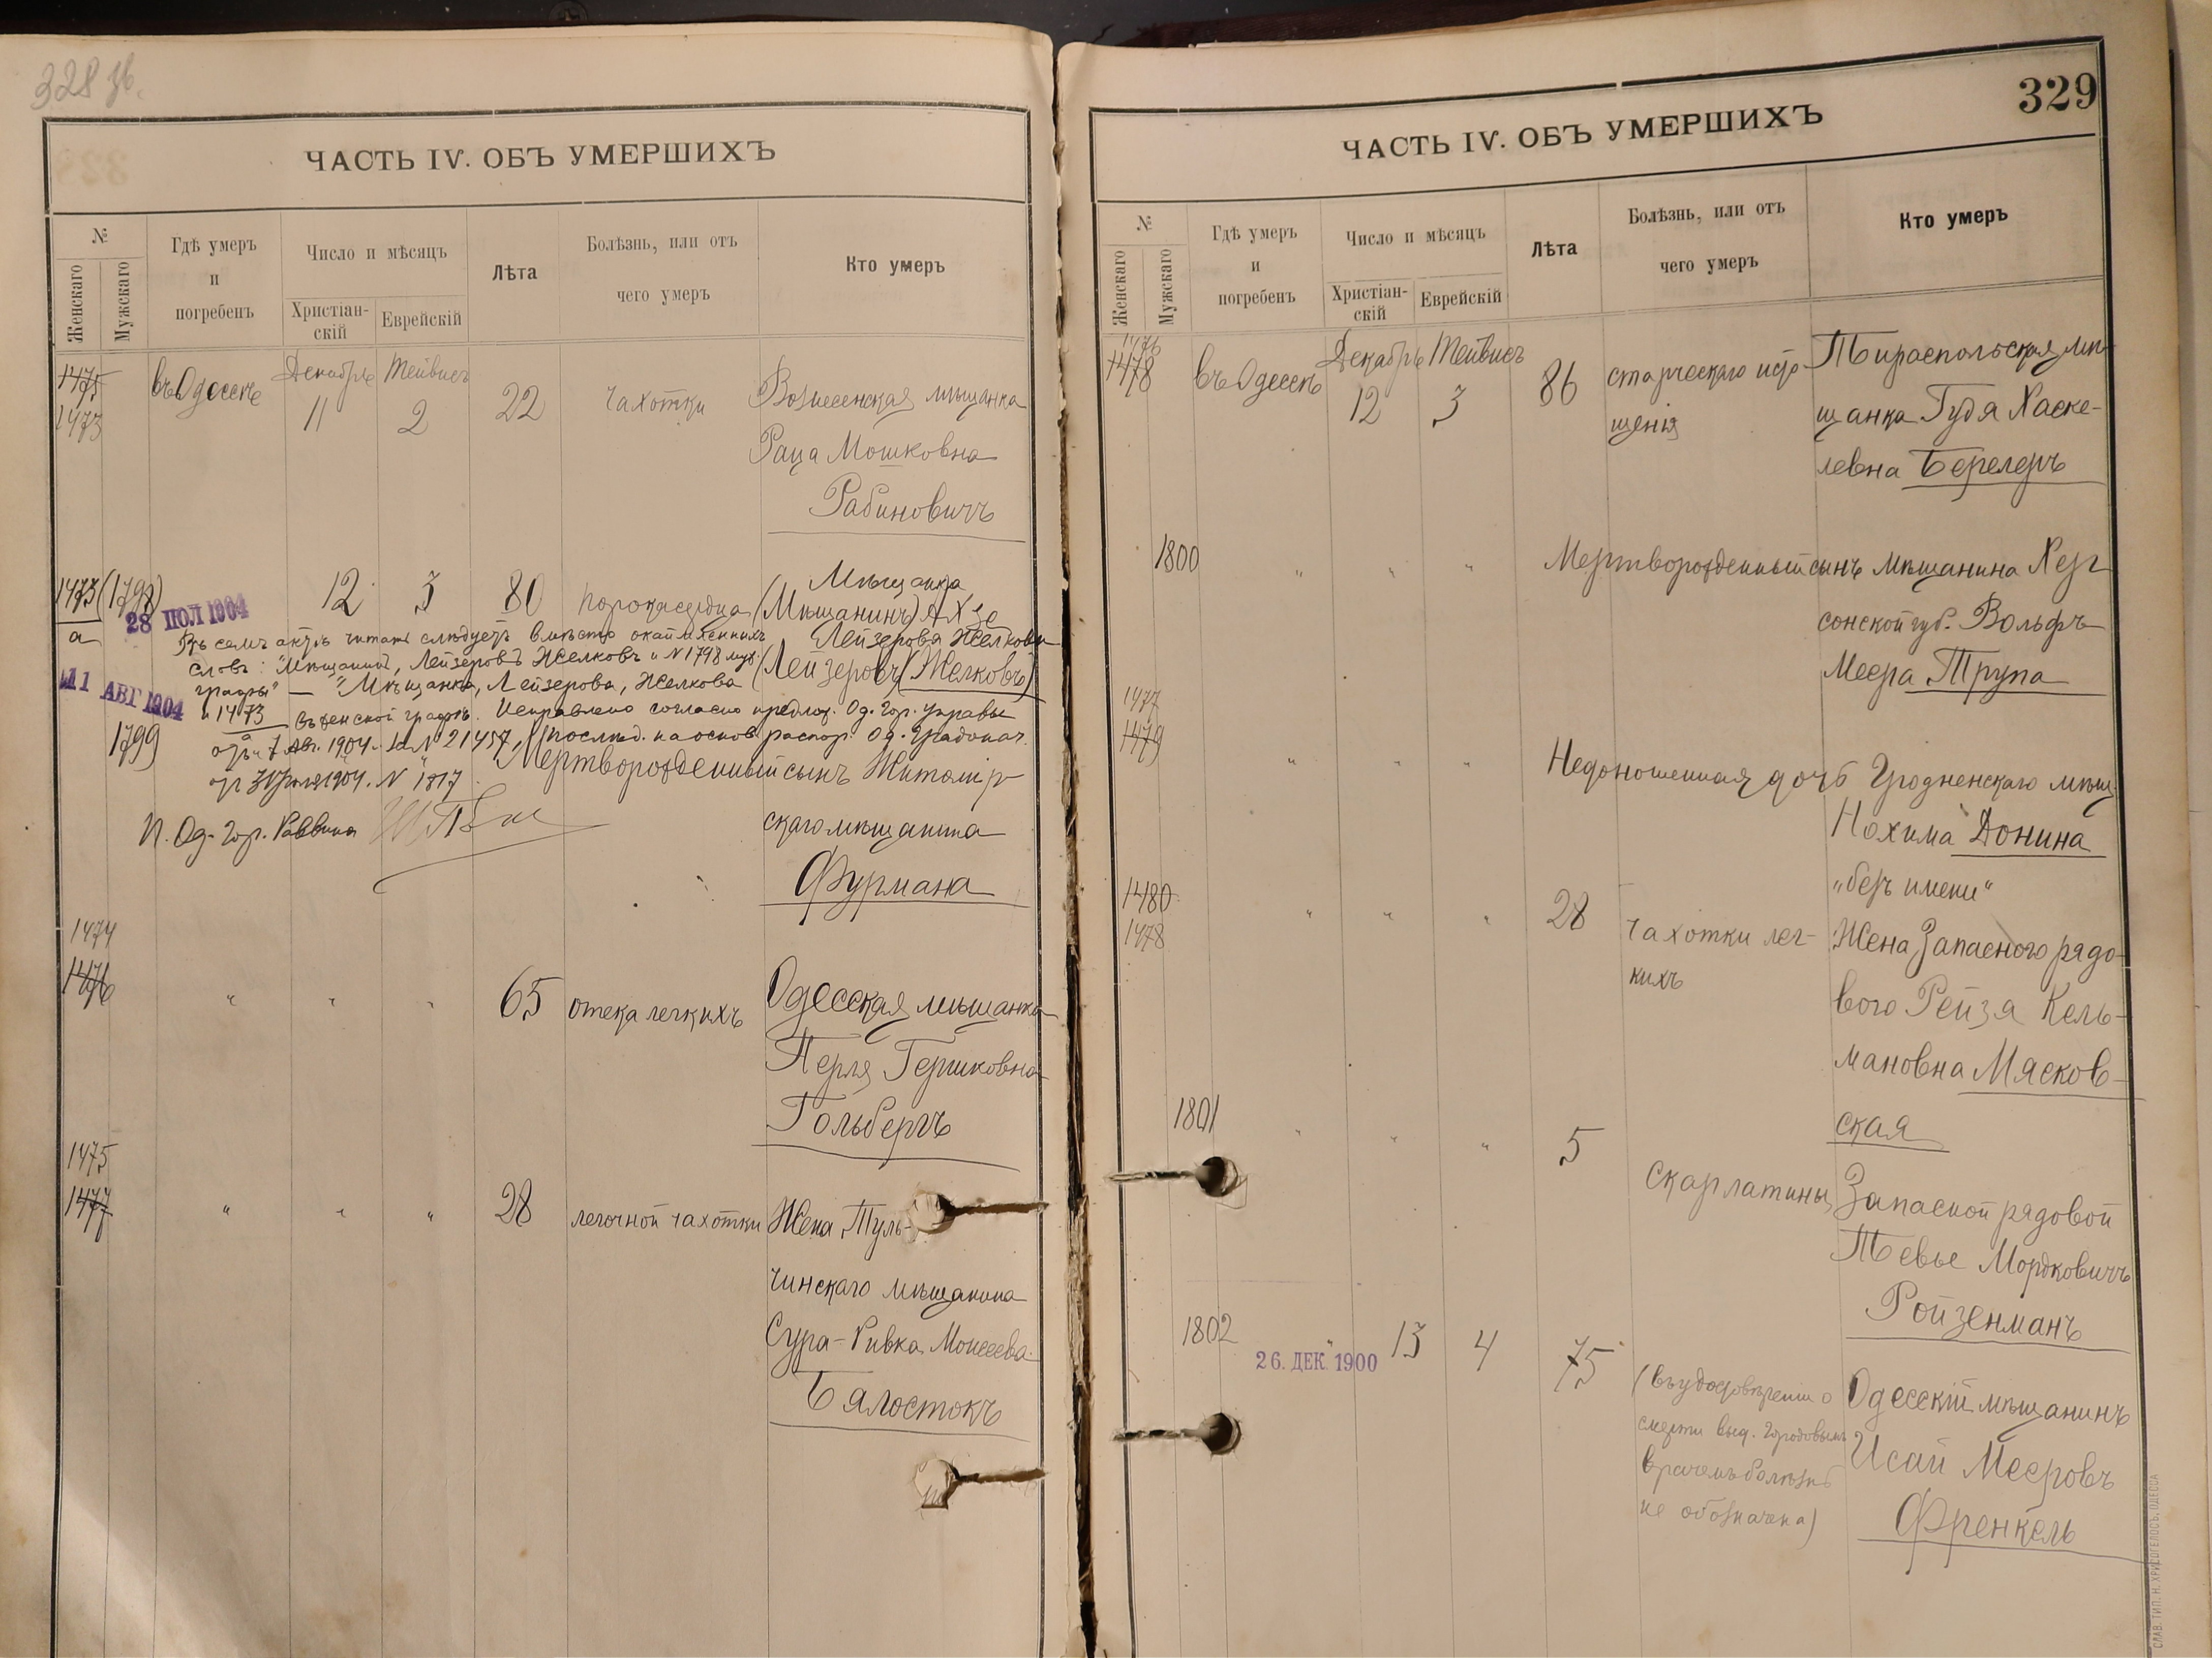 328 зв.
ЧАСТЬ IV. ОБЪ УМЕРШИХЪ
№
Женскаго
Мужскаго
Гдѣ умеръ
и
погребенъ
Число и мѣсяцъ
Христіан-
скій
Еврейскій
Лѣта
Болѣзнь, или отъ
чего умеръ
Кто умеръ
1475
1473
въ Одессѣ
Декабрь
11
Тейвисъ
2
22
чахотки
Вознесенская мѣщанка
Раца Мошковна
Рабиновичъ
1473
а
(1798)
12
3
80
порока сердца
Мѣщанка
(Мѣщанинъ) Ахзе
Лейзерова Желкова
(Лейзеровъ) (Желковъ)
28 ІЮЛ 1904
Въ семъ актѣ читать слѣдуетъ вмѣсто окаймленныхъ
словъ: "Мѣщанинъ, Лейзеровъ Желковъ и N 1798 муж.
графы" — "Мѣщанка, Лейзерова, Желкова
11 АВГ 1904
и 1473
а
въ женской графѣ. Исправлено согласно предлож. Од. Гор. Управы
отъ 7 Авг. 1904 за N 21457, послѣд. на основ. распор. Од. Градонач.
от 30 Іюля 1904. N 1817
П. Од. Гор. Раввина
1799
Мертворожденный сынъ Житомір
скаго мѣщанина
Фурмана
1474
1476
" " "
65
отека легкихъ
Одесская мѣщанка
Перля Гершковна
Гольбергъ
1475
1477
" " "
28
легочной чахотки
Жена Туль-
чинскаго мѣщанина
Сура-Ривка Моисеева
Бялостокъ
329
ЧАСТЬ IV. ОБЪ УМЕРШИХЪ
№
Женскаго
Мужскаго
Гдѣ умеръ
и
погребенъ
Число и мѣсяцъ
Христіан-
скій
Еврейскій
Лѣта
Болѣзнь, или отъ
чего умеръ
Кто умеръ
1476
1478
въ Одессѣ
Декабрь
12
Тейвисъ
3
86
старческаго исто
щенія
Тираспольская мѣ-
щанка Гудя Хаске-
левна Берелеръ
1800
" " "
Мертворожденный сынъ мѣщанина Хер
сонской губ. Вольфъ
Меера Трупа
1477
1479
" " "
Недоношенная дочь Гродненскаго мѣщ
Нохима Донина
"безъ имени"
1480
1478
" " "
28
чахотки лег-
кихъ
Жена Запасного рядо-
вого Рейзя Кель-
мановна Мясков-
ская
1801
" " "
5
Скарлатины
Запасной рядовой
Тевье Мордковичъ
Ройзенманъ
1802
"
26. ДЕК. 1900
13
4
75
(въ удостовѣреніи о
смерти выд. Городовымъ
врачемъ болѣзнь
не обозначена)
Одесскій мѣщанинъ
Исай Мееровъ
Френкель
СЛАВ. ТИП. Н. ХРИСОГЕЛОСЪ, ОДЕССА